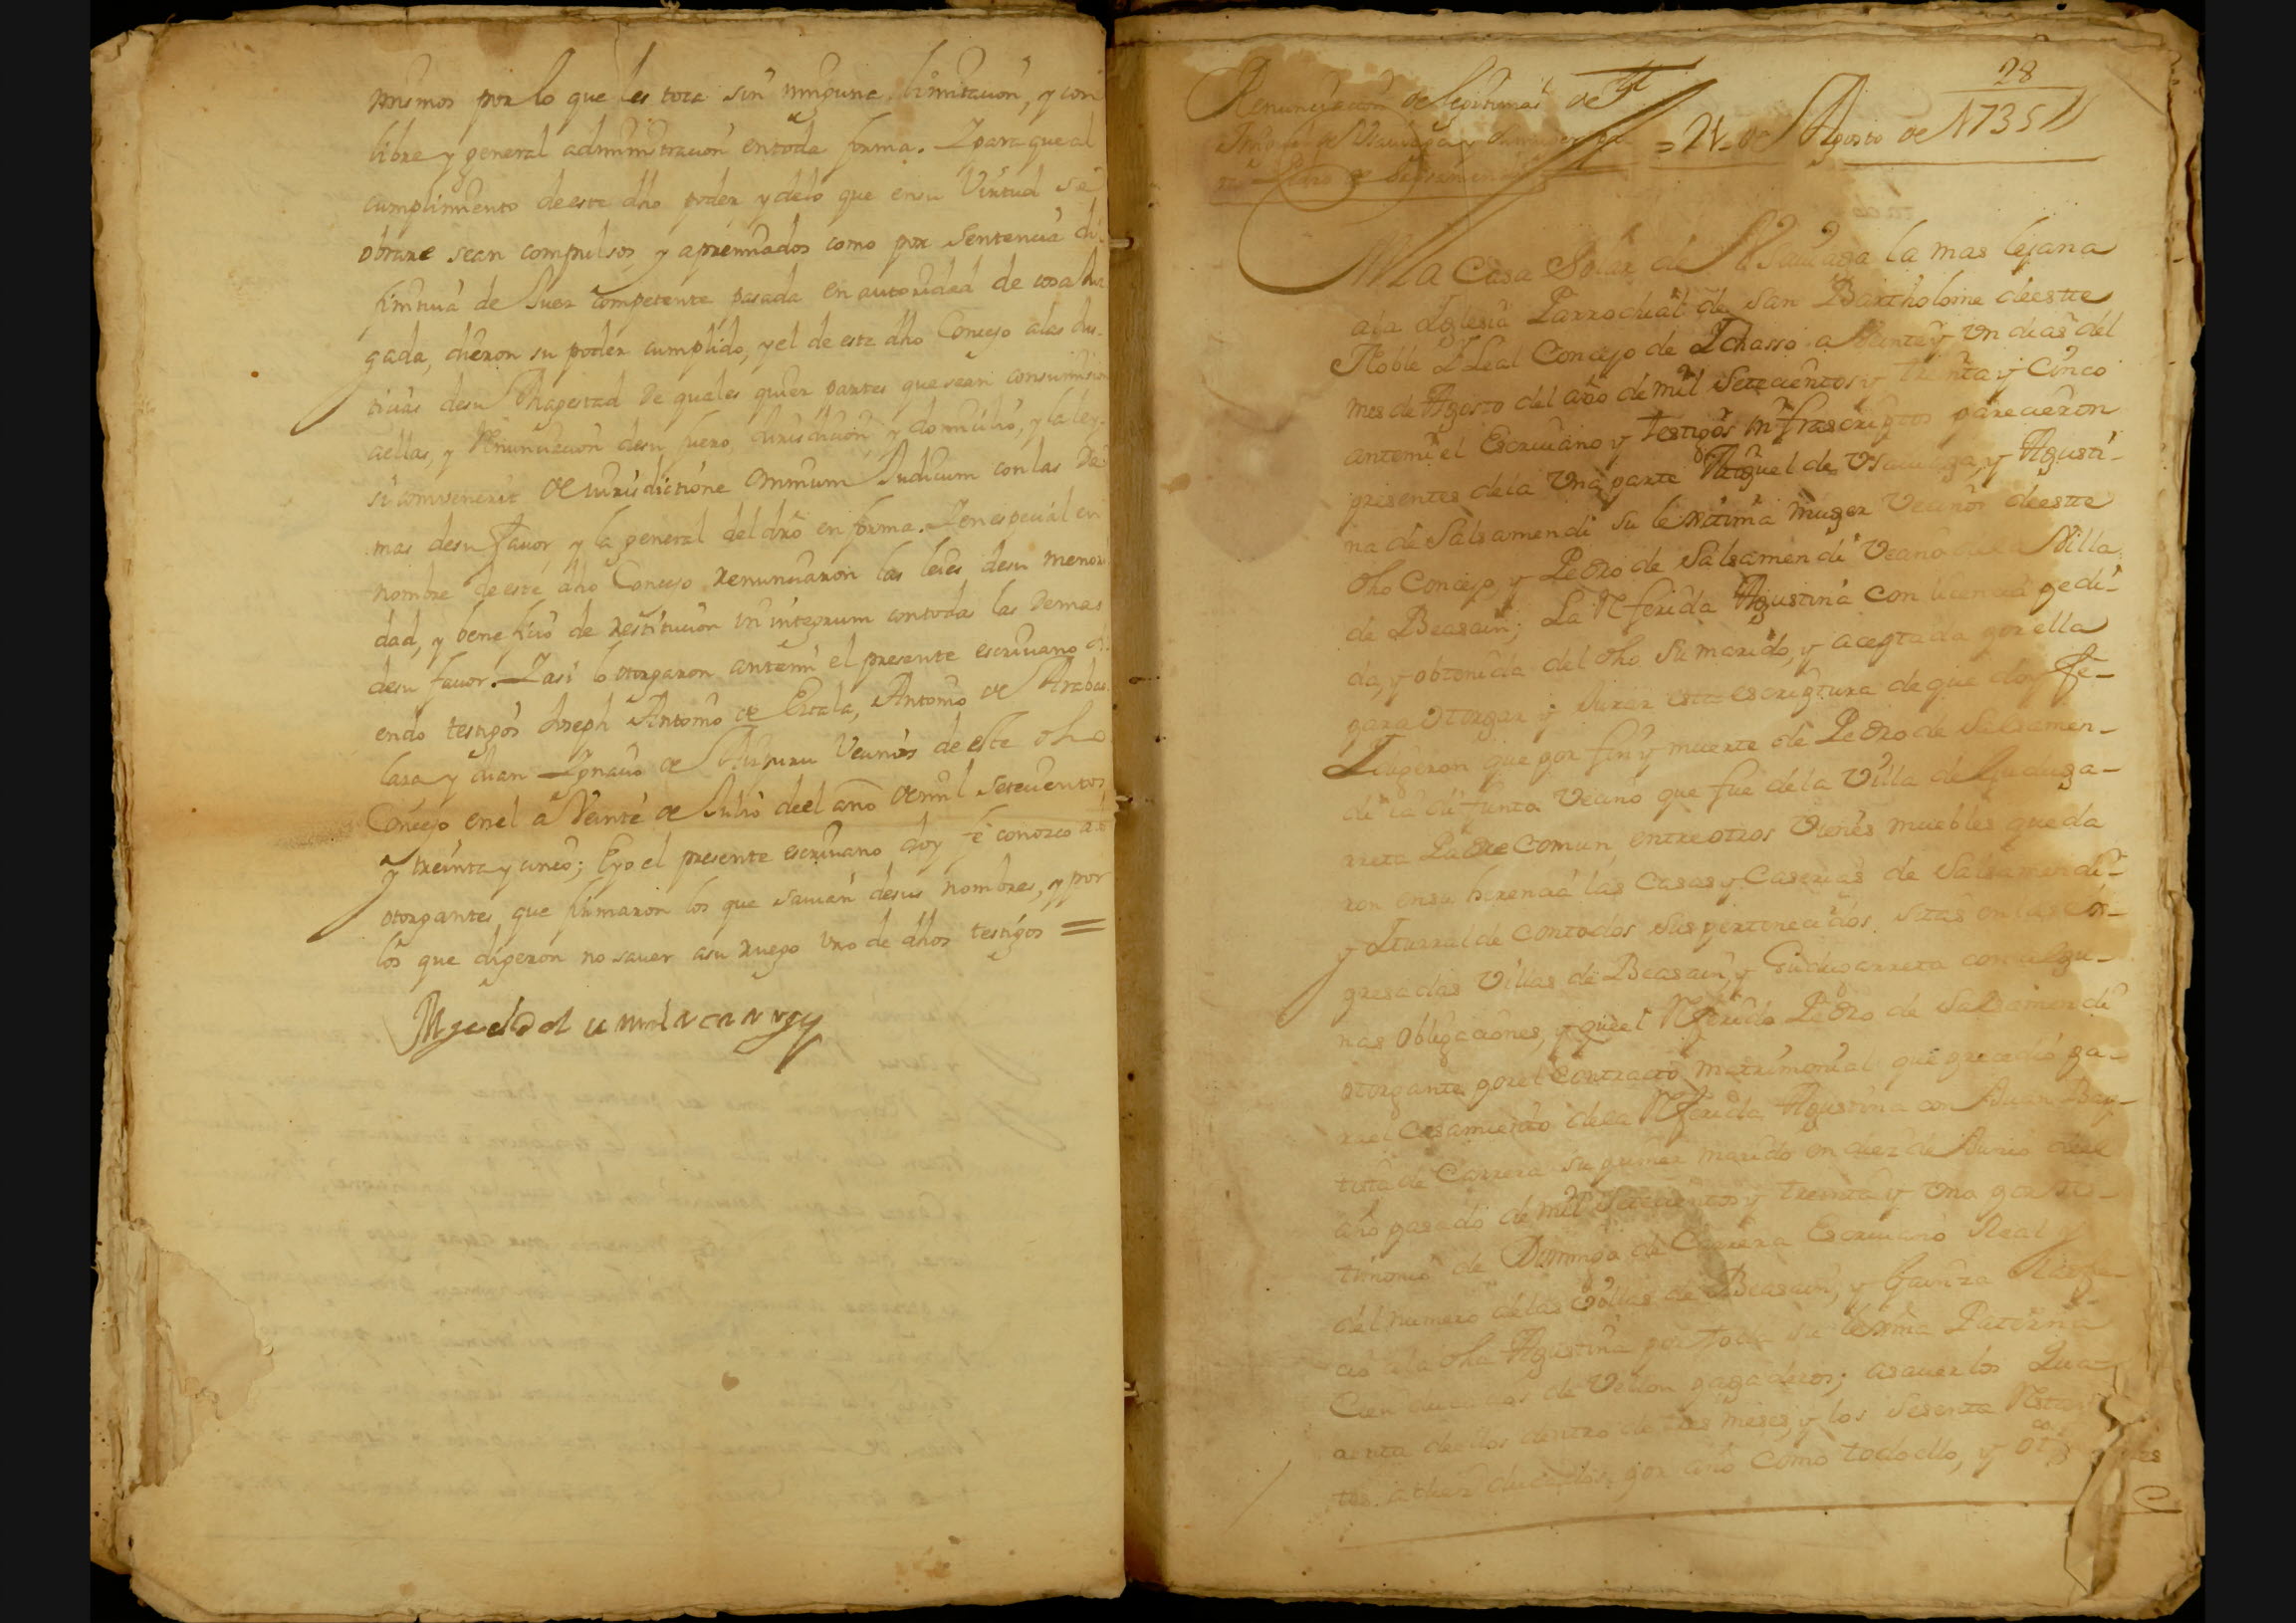 mismos por lo que les toca sin ninguna limitación, y con
libre y general administración en toda forma. I para que al
cumplimiento de este dho poder y de lo que en su Virtud se
obrare sean compulsos y apremiados como por sentencia di
finitiua de Juez competente pasada en autoridad de cosa Juz
gada, dieron su poder cumplido, y el de este dho Concejo a las Jus-
ticias de su Magestad de quales quier partes que sean con sumision
aellas, y Renunciación de su fuero, Jurisdicion y domicilio, y la ley
si convenerit de Jurisdictione omnium Judicum con las de
mas de su fauor, y la general del dro en forma. I en especial en
nombre de este dho Concejo renunciaron las leies de su menori
dad, y beneficio de restitucion in integrum con todas las demas
de su fauor. I asi lo otorgaron ante mi el presente escriuano si
endo testigos Joseph Antonio de Antonio de
y Juan Ignacio de Vecinos de este dho
Concejo en el a Veinte de Julio de el año de mil setecientos
y treinta y cinco; E yo el presente escriuano doy fe conozco a los
otorgantes, que firmaron los que sauian de sus nombres, y por
los que digeron no sauer a su ruego uno de dhos testigos =
28
Renunciacion de legitimas de
= 21 de Agosto de 1735
la Casa Solar de Vsauiaga la mas lejana
a la Iglesia Parrochial de San Bartholome de este
Noble I Leal Concejo de Ichasso a Veinte y un dias del
mes de Agosto del año de mil Setecientos y treinta y cinco
ante mi el Escriuano y testigos infrascriptos parecieron
presentes de la una parte Miguel de Vsauiaga, y Agusti-
na de Salsamendi su lexitima muger Vecinos de este
dho Concejo y Pedro de Salsamendi Vecino de la Villa
de Beasain; La Referida Agustina con licencia pedi-
da, y obtenida del dho su marido, y aceptada por ella
para otorgar y Jurar esta escriptura de que doy fe-
Digeron que por fin y muerte de Pedro de Salsamen-
di ia difunto Vecino que fue de la Villa de Guduga-
rreta Padre Comun, entre otros Vienes muebles queda
ron en su herencia las Casas y Caserias de Salsamendi-
y Iturralde con todos sus pertenecidos sitas en las ex-
presadas Villas de Beasain, y Gudugarreta con algu-
nas obligaciones, y que el Referido Pedro de Salsamendi
otorgante por el Contracto matrimonial que precedio pa-
ra el Casamiento de la Referida Agustina con Juan Bap-
tista de Carrera su primer marido en diez de Junio de el
año pasado de mil Setecientos y treinta y uno por tes-
timonio de Domingo de Carrera Escriuano Real y
del numero de las Villas de Beasain, y
cio a la dha Agustina por toda su lexitima Paterna
Cien ducados de Vellon pagaderos; a sauer los Qua-
renta de ellos dentro de tres meses, y los Sesenta Restan
tes a diez ducados por año como todo ello, y